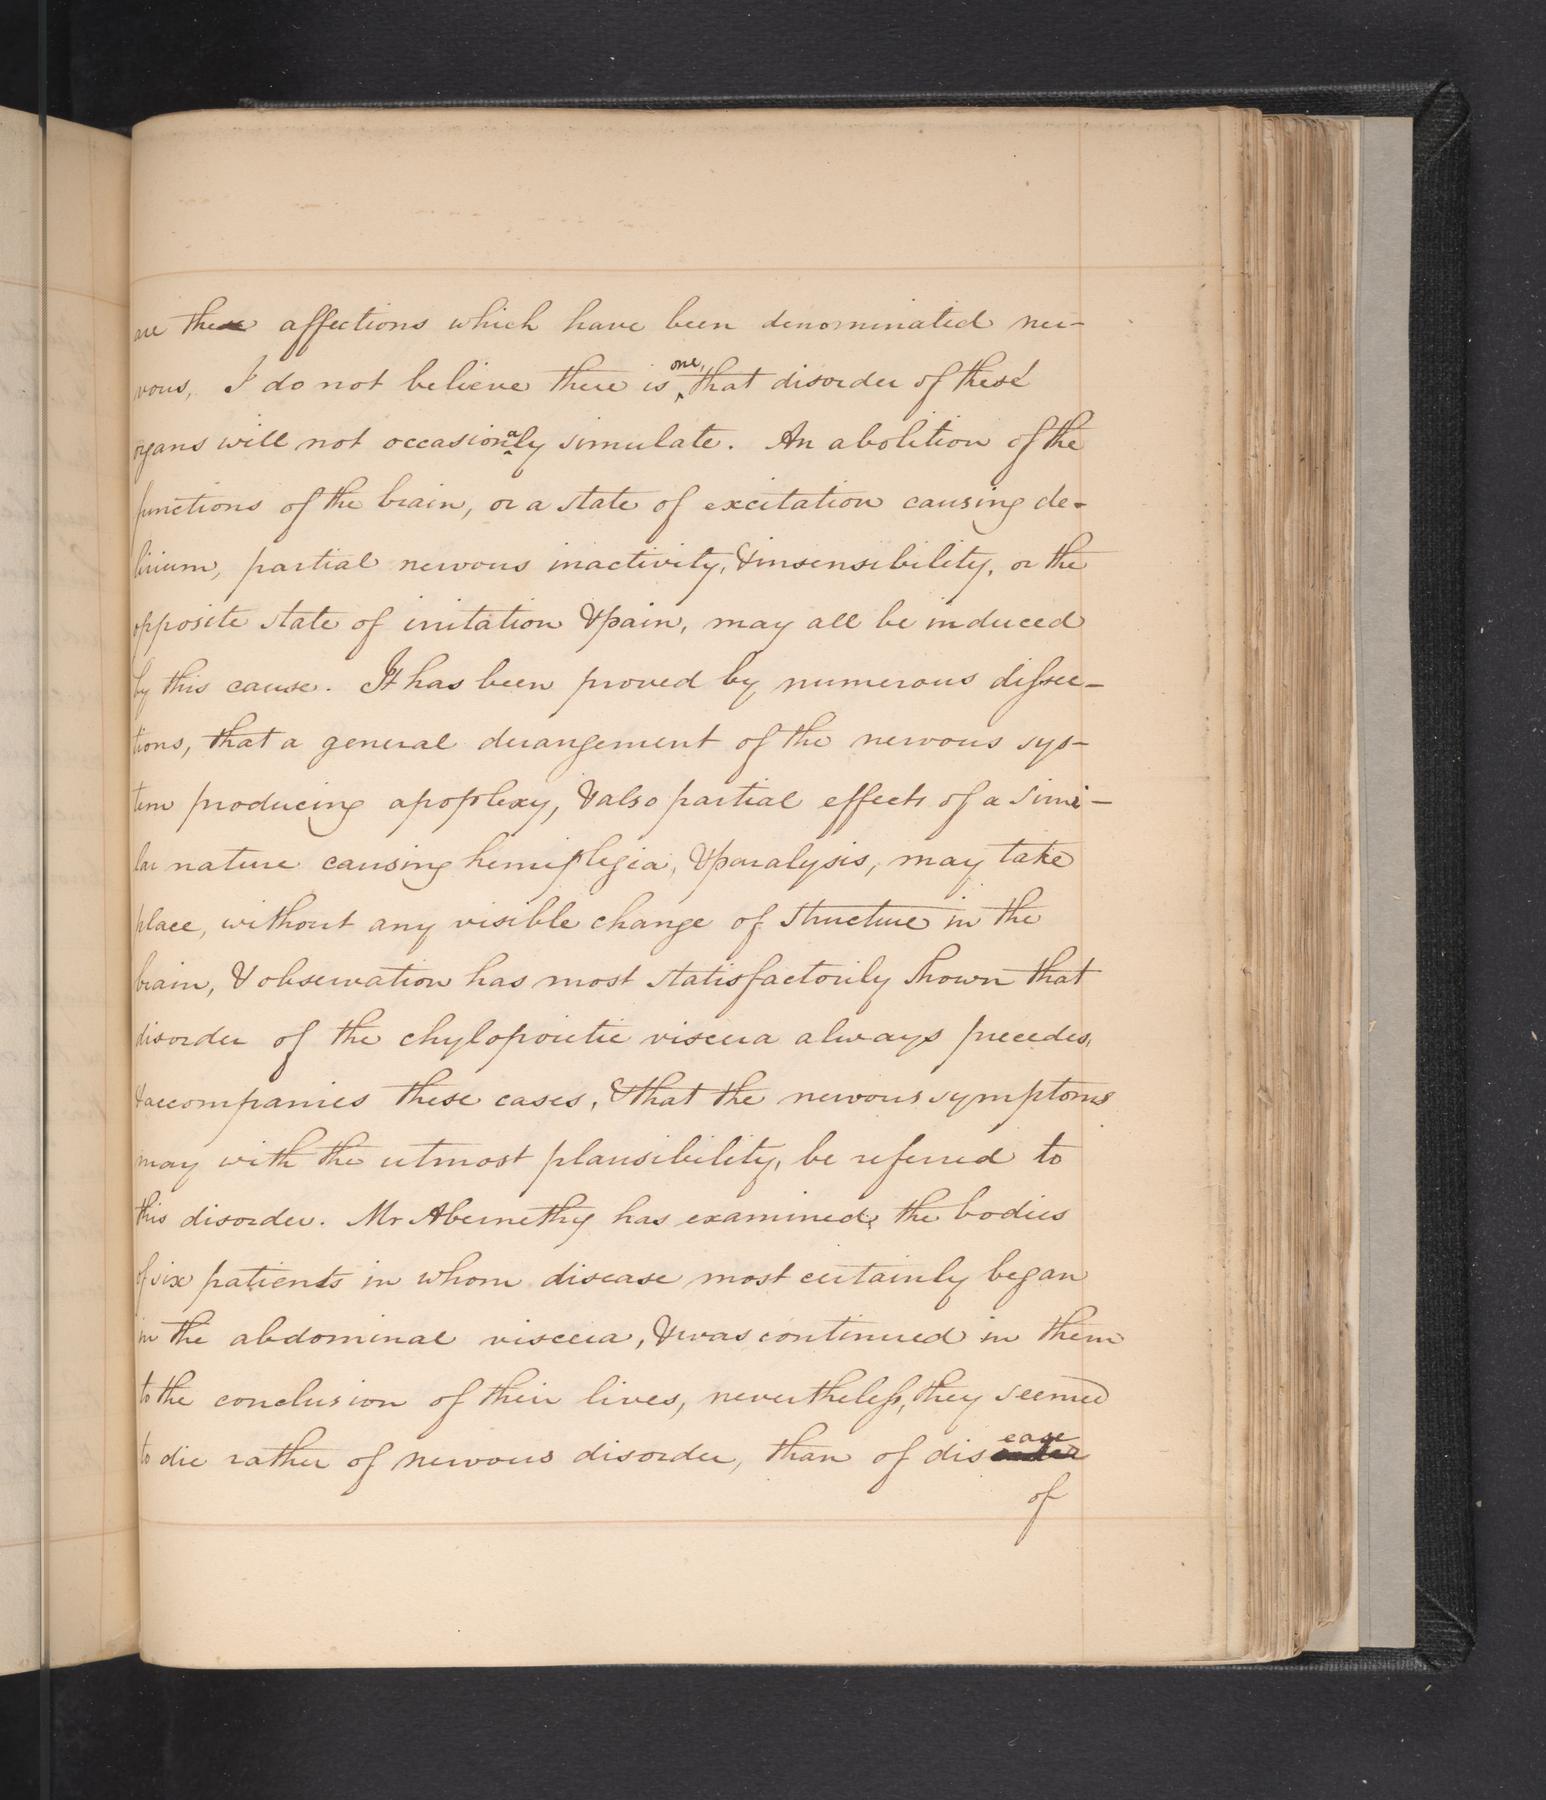 are the affections which have been denominated ner-
vous, I do not believe there is one, that disorder of these
organs will not occasionaly simulate. An abolition of the
functions of the brain, or a state of excitation causing de-
lirium, partial nervous inactivity, & insensibility, or the
opposite state of irritation & pain, may all be induced
by this cause. It has been proved by numerous dissec-
tions, that a general derangement of the nervous sys-
tem producing apoplexy, & also partial effects of a simi-
lar nature causing hemiplegia, & paralysis, may take
place, without any visible change of structure in the
brain, & observation has most statisfactorily shown that
disorder of the chylopoietic viscera always precedes,
& accompanies these cases, & that the nervous symptoms
may with the utmost plausibility, be referred to
this disorder. Mr Abernethy has examined, the bodies
of six patients in whom disease most certainly began
in the abdominal viscera, & was continued in them
to the conclusion of their lives, nevertheless, they seemed
to die rather of nervous disorder, than of disease
of